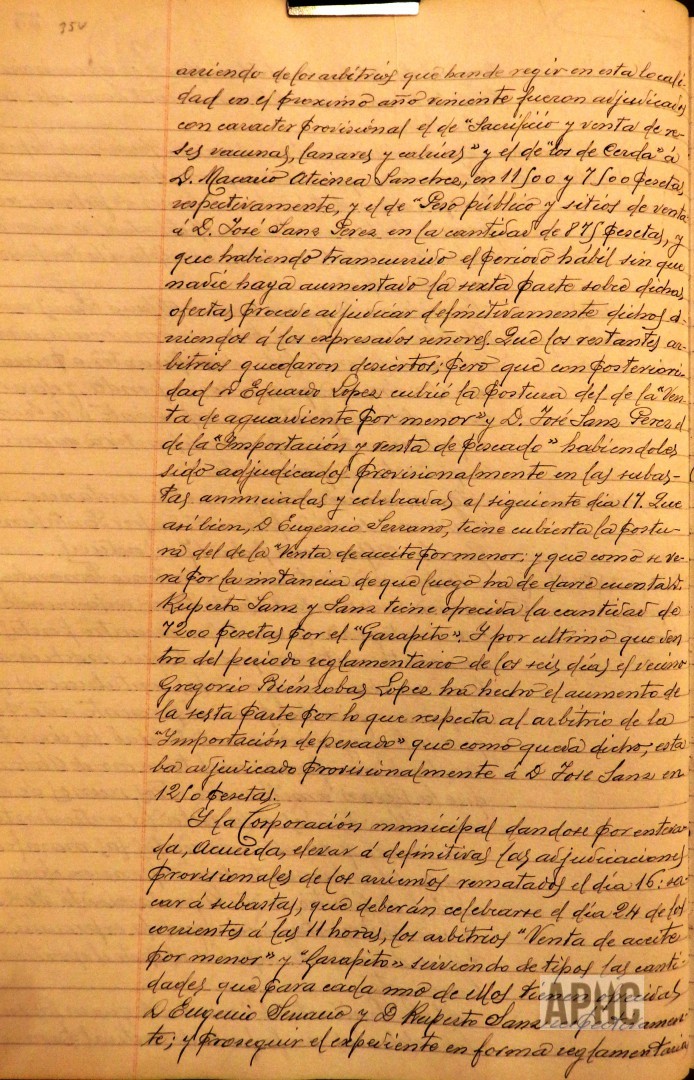 354
arriendo de los arbitrios que han de regir en esta locali
dad en el próximo año viniente fueron adjudicados
con caracter provisional el de "Sacrificio y venta de re-
ses vacunas, lanares y cabrias" y el de "los de Cerda" á
D. Macario Atienza Sanchez, en 11500 y 7500 pesetas,
respectivamente, y el de "Peso público y sitios de venta
á D. José Sanz Perez en la cantidad de 875 pesetas, y
que habiendo transcurrido el periodo hábil sin que
nadie haya aumentado la sexta parte sobre dichas
ofertas procede adjudicar definitivamente dichos a-
rriendos á los expresados señores. Que los restantes ar-
bitrios quedaron desiertos; pero que con posteriori-
dad D Eduardo Lopez cubrió la postura del de la "Ven
ta de aguardiente por menor" y D. José Sanz Perez el
de la "Importación y venta de pescado" habiendoles
sido adjudicados provisionalmente en las subas-
tas anunciadas y celebradas al siguiente dia 17. Que
asi bien, D Eugenio Serrano, tiene cubierta la postu-
ra del de la "Venta de aceite por menor; y que como se ve-
rá por la instancia de que luego ha de darse cuenta D.
Ruperto Sanz y Sanz tiene ofrecida la cantidad de
7200 pesetas por el "Garapito". Y por ultimo que den
tro del periodo reglamentario de los seis días el vecino
Gregorio Biénzobas Lopez ha hecho el aumento de
la sesta parte por lo que respecta al arbitrio de la
"Importación de pescado" que como queda dicho, esta
ba adjudicado provisionalmente á D José Sanz en
1250 pesetas.
Y la Corporación municipal dandose por entera
da, Acuerda, elevar á definitivas las adjudicaciones
provisionales de los arriendos rematados el día 16: sa-
car á subastas, que deberán celebrarse el día 24 de los
corrientes á las 11 horas, los arbitrios "Venta de aceite
por menor" y "Garapito" sirviendo de tipos las canti
dades que para cada uno de ellos tienen ofrecidas
D Eugenio Serrano y D Ruperto Sanz respectivamen-
te; y proseguir el expediente en forma reglamentaria
APHC